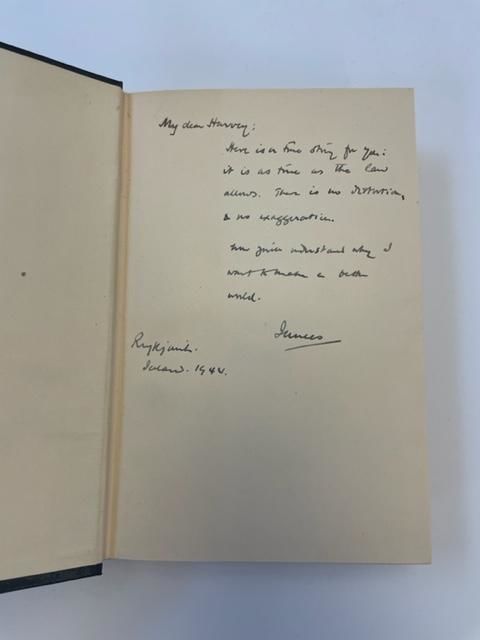 My dear Harvey:
Here is a true story for you:
it is as true as the law
allows. There is no distortion,
& no exaggeration.
understand why I
want to make a better
world.
James
Reykjavik.
Iceland. 1942.